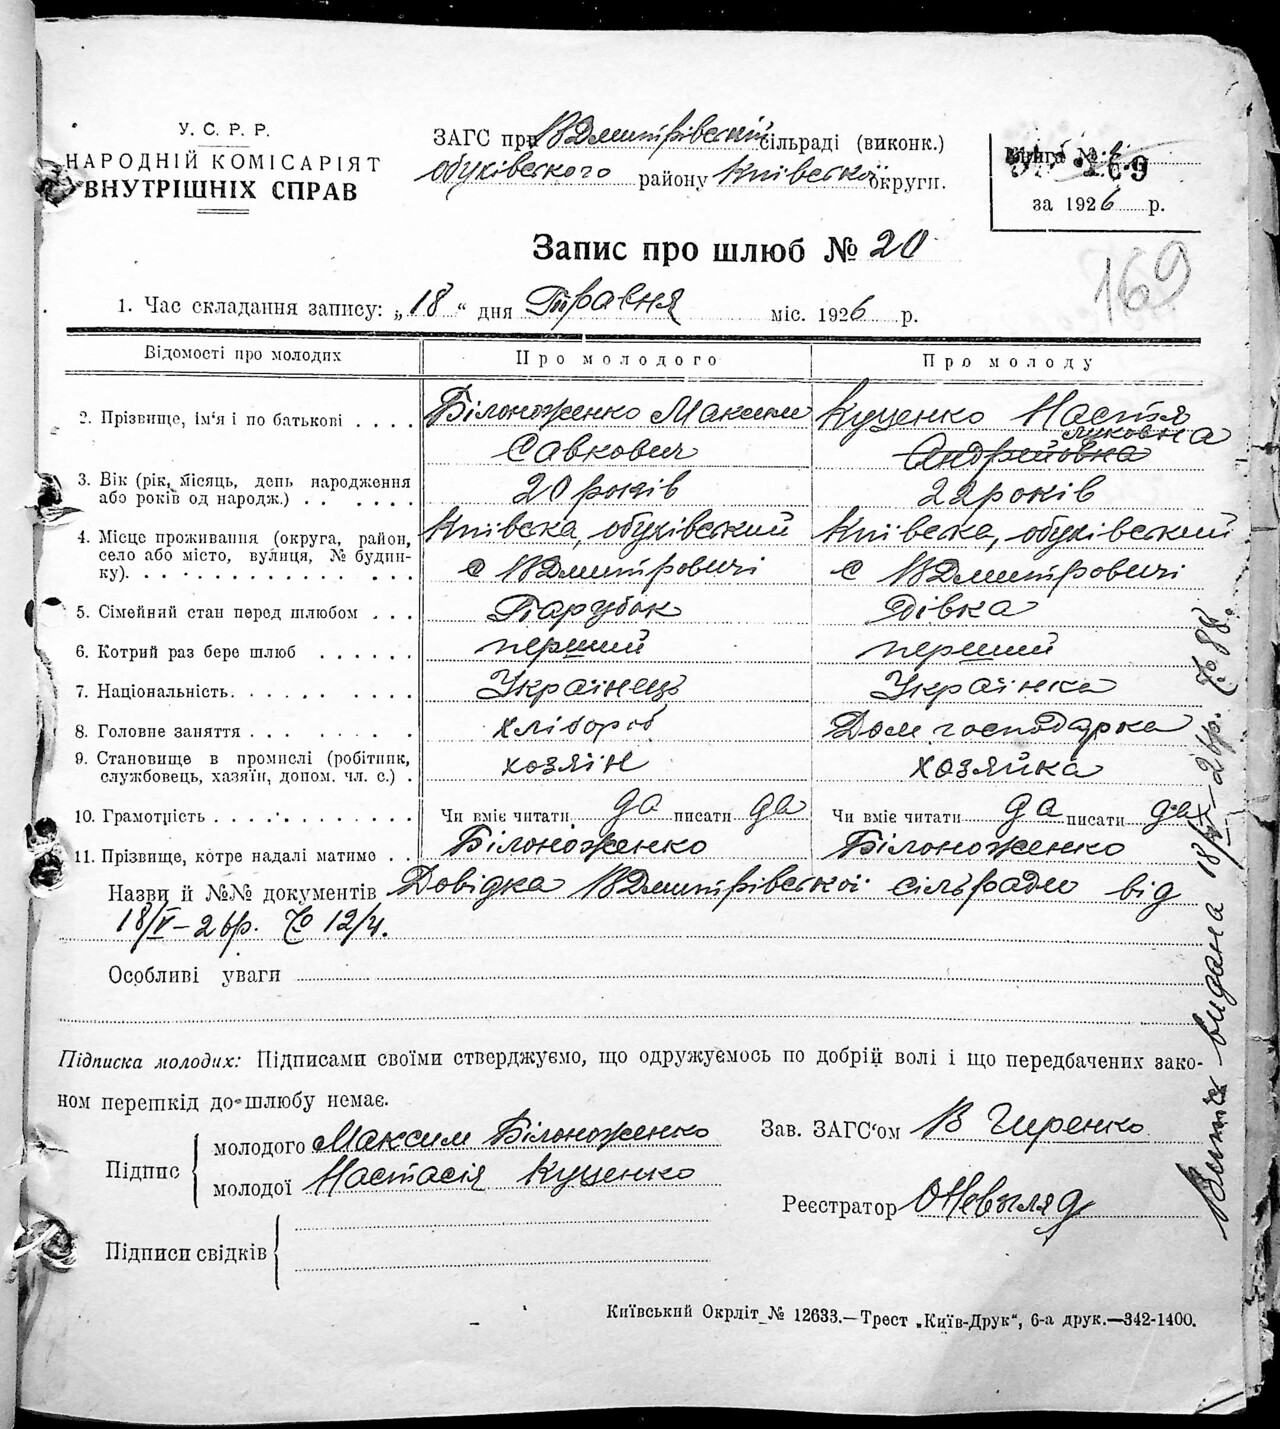 У. С. Р. Р.
НАРОДНІЙ КОМІСАРІЯТ
ВНУТРІШНІХ СПРАВ
ЗАГС при ВДмитрівській сільраді (виконк.)
обухівського району Київської округи.
Книга №
69
за 1926 р.
169
Запис про шлюб № 20
1. Час складання запису: „18“ дня Травня міс. 1926 р.
Відомості про молодих Про молодого Про молоду
2. Прізвище, ім'я і по батькові . . . . Білоноженко Максим Куценко Настя
Луковна
Савкович Андрийовна
3. Вік (рік, місяць, день народження
або років од народж.) . . . . . . 20 років 22 років
4. Місце проживання (округа, район,
село або місто, вулиця, № будин-
ку). Київска, обухівський Київска, обухівський
с ВДмитровичі с ВДмитровичі
5. Сімейний стан перед шлюбом . . . Парубок Дівка
6. Котрий раз бере шлюб . . . . . . перший перший
7. Національність. . . . . . . . . Українець Українка
8. Головне заняття . . . . . . . . хлібороб Дом господарка
9. Становище в промислі (робітник,
службовець, хазяїн, допом. чл. с.) . хозяїн хозяйка
10. Грамотність . . . . . . . . . . . Чи вміє читати да писати да Чи вміє читати да писати да
11. Прізвище, котре надалі матиме . . Білоноженко Білоноженко
Назви й №№ документів Довідка ВДмитрівської сільради від
18/V–26р. № 12/4.
Особливі уваги
Підписка молодих: Підписами своїми стверджуємо, що одружуємось по добрій волі і що передбачених зако-
ном перешкід до шлюбу немає.
Підпис
молодого Максим Білоноженко
молодої Настасія Куценко
Зав. ЗАГС'ом В Гиренко
Реєстратор ОНевгляд
Підписи свідків
Витяг видана 18/IX–26р. № 88.
Київський Окрліт № 12633.—Трест „Київ-Друк“, 6-а друк.—342-1400.